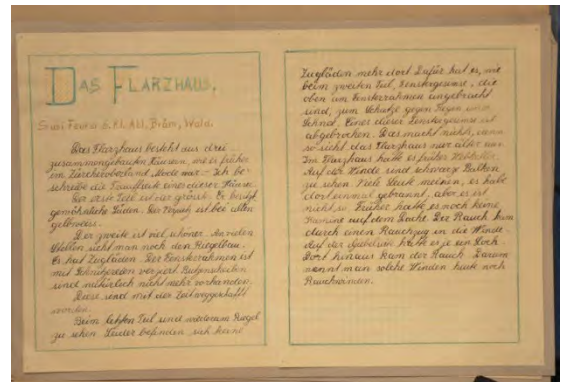 DAS FLARZHAUS.
Susi 6. Kl. Abt. Wald.
Das Flarzhaus besteht aus drei
zusammengebauten Häusern, wie es früher
im Zürcheroberland Mode war. Ich be-
schreibe die Hauptfront eines dieser Häuser.
Der erste Teil ist der grösste. Er besitzt
gewöhnliche Läden. Der Verputz ist bei allen
gelbweiss.
Der zweite ist viel schöner. An vielen
Stellen sieht man noch den Riegelbau.
Er hat Zugläden. Der Fensterrahmen ist
mit Schnitzereien verziert. Butzenscheiben
sind natürlich nicht mehr vorhanden.
Diese sind mit der Zeit weggeschafft
worden.
Beim letzten Teil sind wiederum Riegel
zu sehen. Leider befinden sich keine
Zugläden mehr dort. Dafür hat es, wie
beim zweiten Teil, Fenstergesimse, die
oben am Fensterrahmen angebracht
sind, zum Schutze gegen Regen und
Schnee. Eines dieser Fenstergesimse ist
abgebrochen. Das macht nichts, denn
so sieht das Flarzhaus nur älter aus.
Im Flarzhaus hatte es früher Webkeller.
Auf der Winde sind schwarze Balken
zu sehen. Viele Leute meinen, es habe
dort einmal gebrannt, aber es ist
nicht so. Früher hatte es noch keine
Kamine auf dem Dache. Der Rauch kam
durch einen Rauchzug in die Winde.
Auf der Giebelseite hatte es je ein Loch.
Dort hinaus kam der Rauch. Darum
nennt man solche Winden heute noch
Rauchwinden.